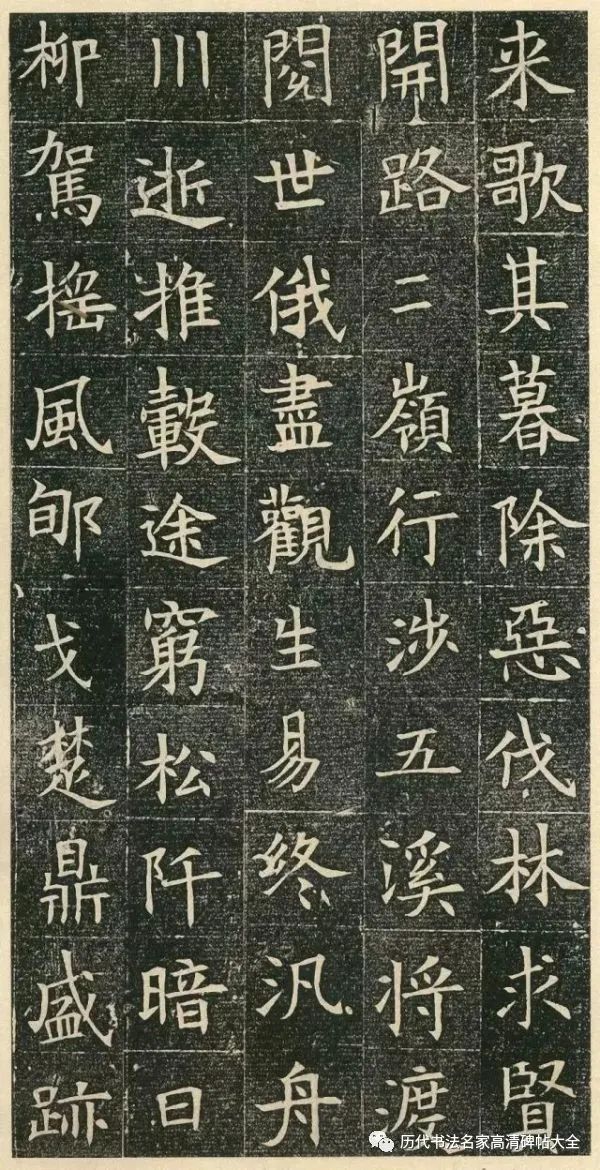 来歌其暮除惡伐林求賢
開路二嶺行涉五溪将渡
閱世俄盡觀生易終汎舟
川逝推轂途窮松阡暗日
柳駕搖風郇戈楚鼎盛跡
历代书法名家高清碑帖大全